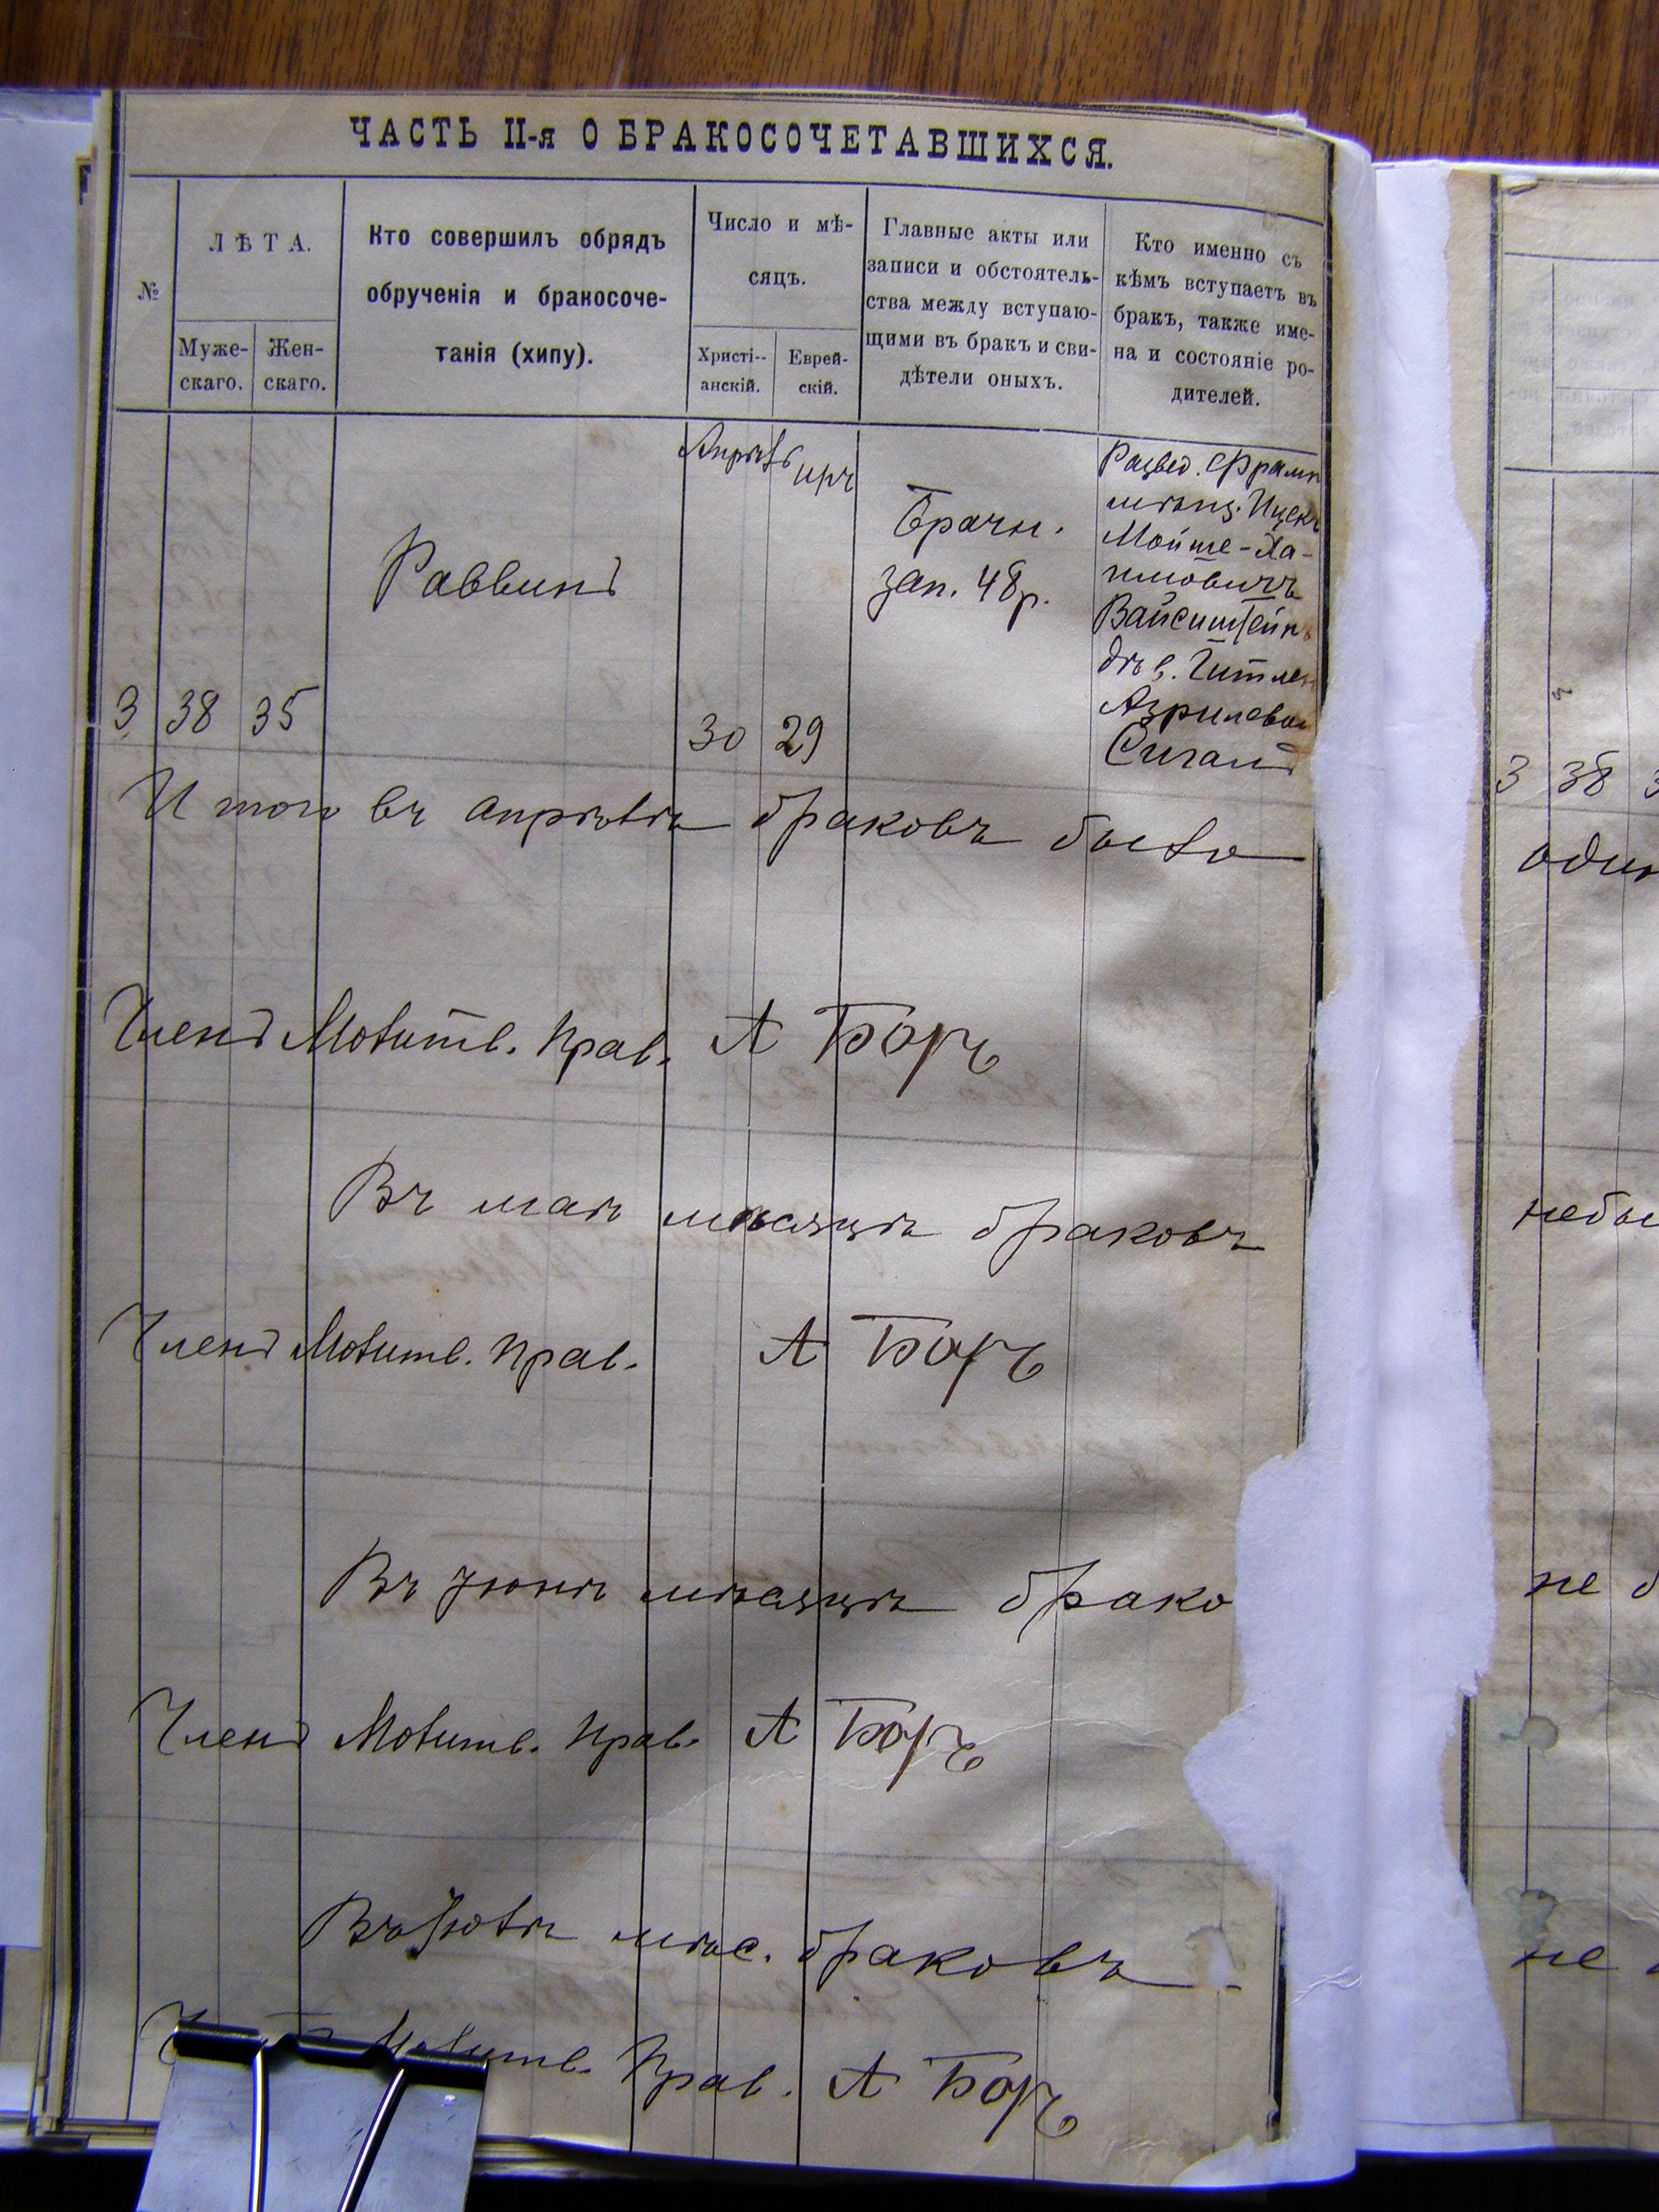 ЧАСТЬ II-я О БРАКОСОЧЕТАВШИХСЯ.
№
ЛѢТА.
Муже-
скаго.
Жен-
скаго.
Кто совершилъ обрядъ
обрученія и бракосоче-
танія (хипу).
Число и мѣ-
сяцъ.
Христі--
анскій.
Еврей-
скій.
Главные акты или
записи и обстоятель-
ства между вступаю-
щими въ бракъ и сви-
дѣтели оныхъ.
Кто именно съ
кѣмъ вступаетъ въ
бракъ, также име-
на и состояніе ро-
дителей.
3 38 35
Раввинъ
Апрѣль
иръ
30 29
Брачн.
зап. 48 р.
Развед.
мѣщ. Ицекъ
Мойше-Ха-
Вайсштейнъ
дѣв.
Итого въ апрѣлѣ браковъ было
Членъ Молитв. Прав. А Боръ
Въ маѣ мѣсяцѣ браковъ
Членъ Молитв. Прав. А Боръ
Въ Іюнѣ мѣсяцѣ брако
Членъ Молитв. Прав. А Боръ
Въ Іюлѣ мѣс. браковъ
Молитв. Прав. А Боръ
3 38 3
один
небы
не б
не